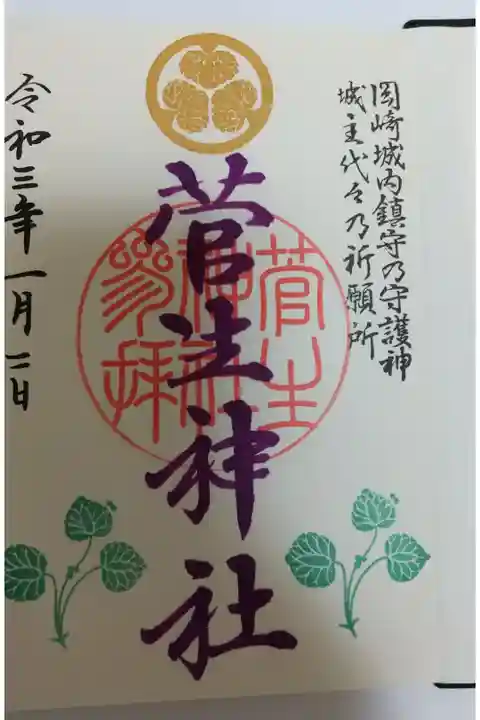 岡崎城内鎮守乃守護神
城主代々乃祈願所
菅生神社
菅生神社参拝
令和三年一月二日